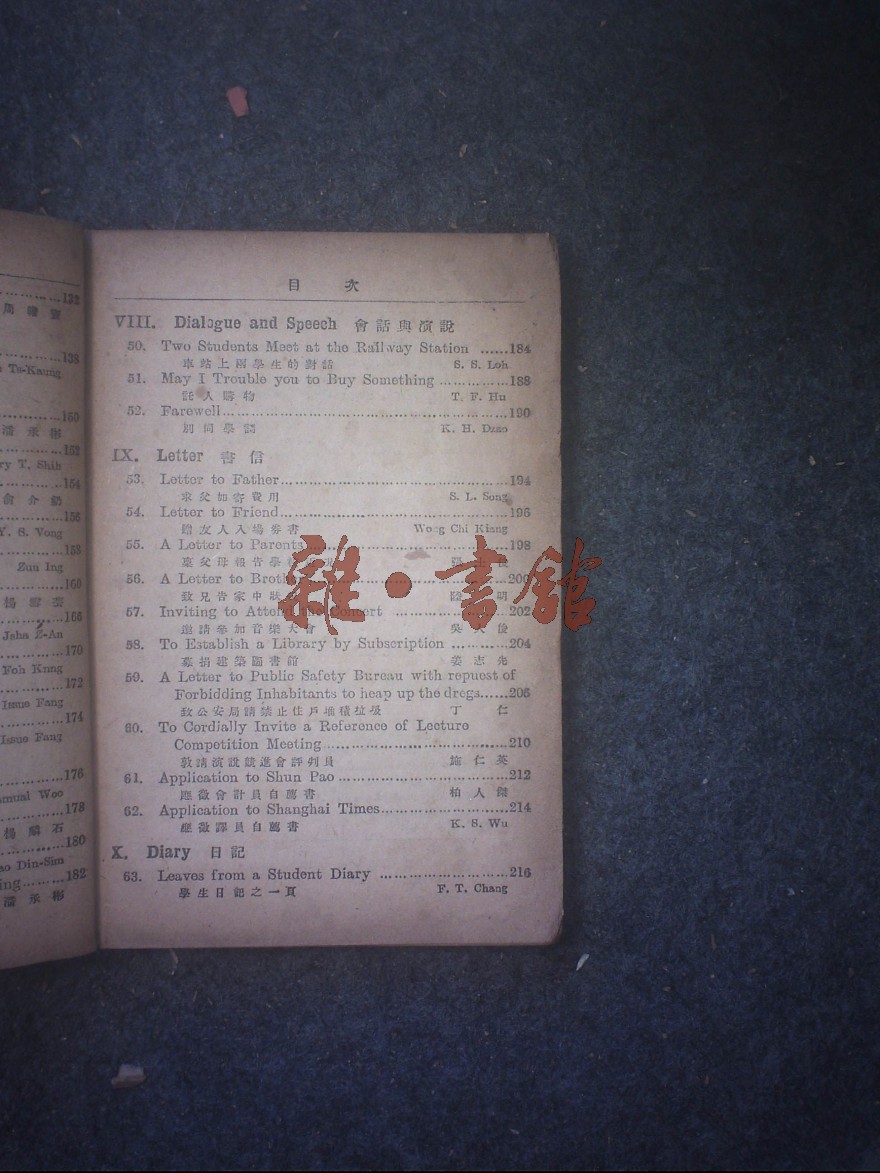 132
138
Ts-Kaung
150
潘承彬
152
ry T. Shih
154
俞介
156
Y. S. Vong
158
Zun Ing
160
楊
166
Jsha Z-An
170
Foh Kung
172
Issue Fang
174
Issue Fang
176
Samuel Woo
178
楊麟石
180
ao Din-Sim
ing.........182
潘承彬
目次
VIII. Dialogue and Speech 會話與演說
50. Two Students Meet at the Railway Station ......184
車站上兩學生的對話 S. S. Loh
51. May I Trouble you to Buy Something ............188
託人購物 T. F. Hu
52. Farewell..................................................190
別同學詞 K. H. Dzao
IX. Letter 書信
53. Letter to Father.......................................194
求父加寄費用 S. L. Song
54. Letter to Friend.......................................196
贈友人入場券書 Wong Chi Kiang
55. A Letter to Parents...................................198
稟父母報告學
56. A Letter to Broth 200
致兄告家中 明
57. Inviting to Attend the Concert ..................202
邀請參加音樂大會 吳
58. To Establish a Library by Subscription .........204
募捐建築圖書館 姜志先
59. A Letter to Public Safety Bureau with repuest of
Forbidding Inhabitants to heap up the dregs......206
致公安局請禁止住戶堆積垃圾 丁仁
60. To Cordially Invite a Reference of Lecture
Competition Meeting.................................210
敦請演說競進會評判員 施仁英
61. Application to Shun Pao ..............................212
應徵會計員自薦書 柏人
62. Application to Shanghai Times......................214
應徵譯員自薦書 K. S. Wu
X. Diary 日記
63. Leaves from a Student Diary ........................216
學生日記之一頁 F. T. Chang
雜·書館